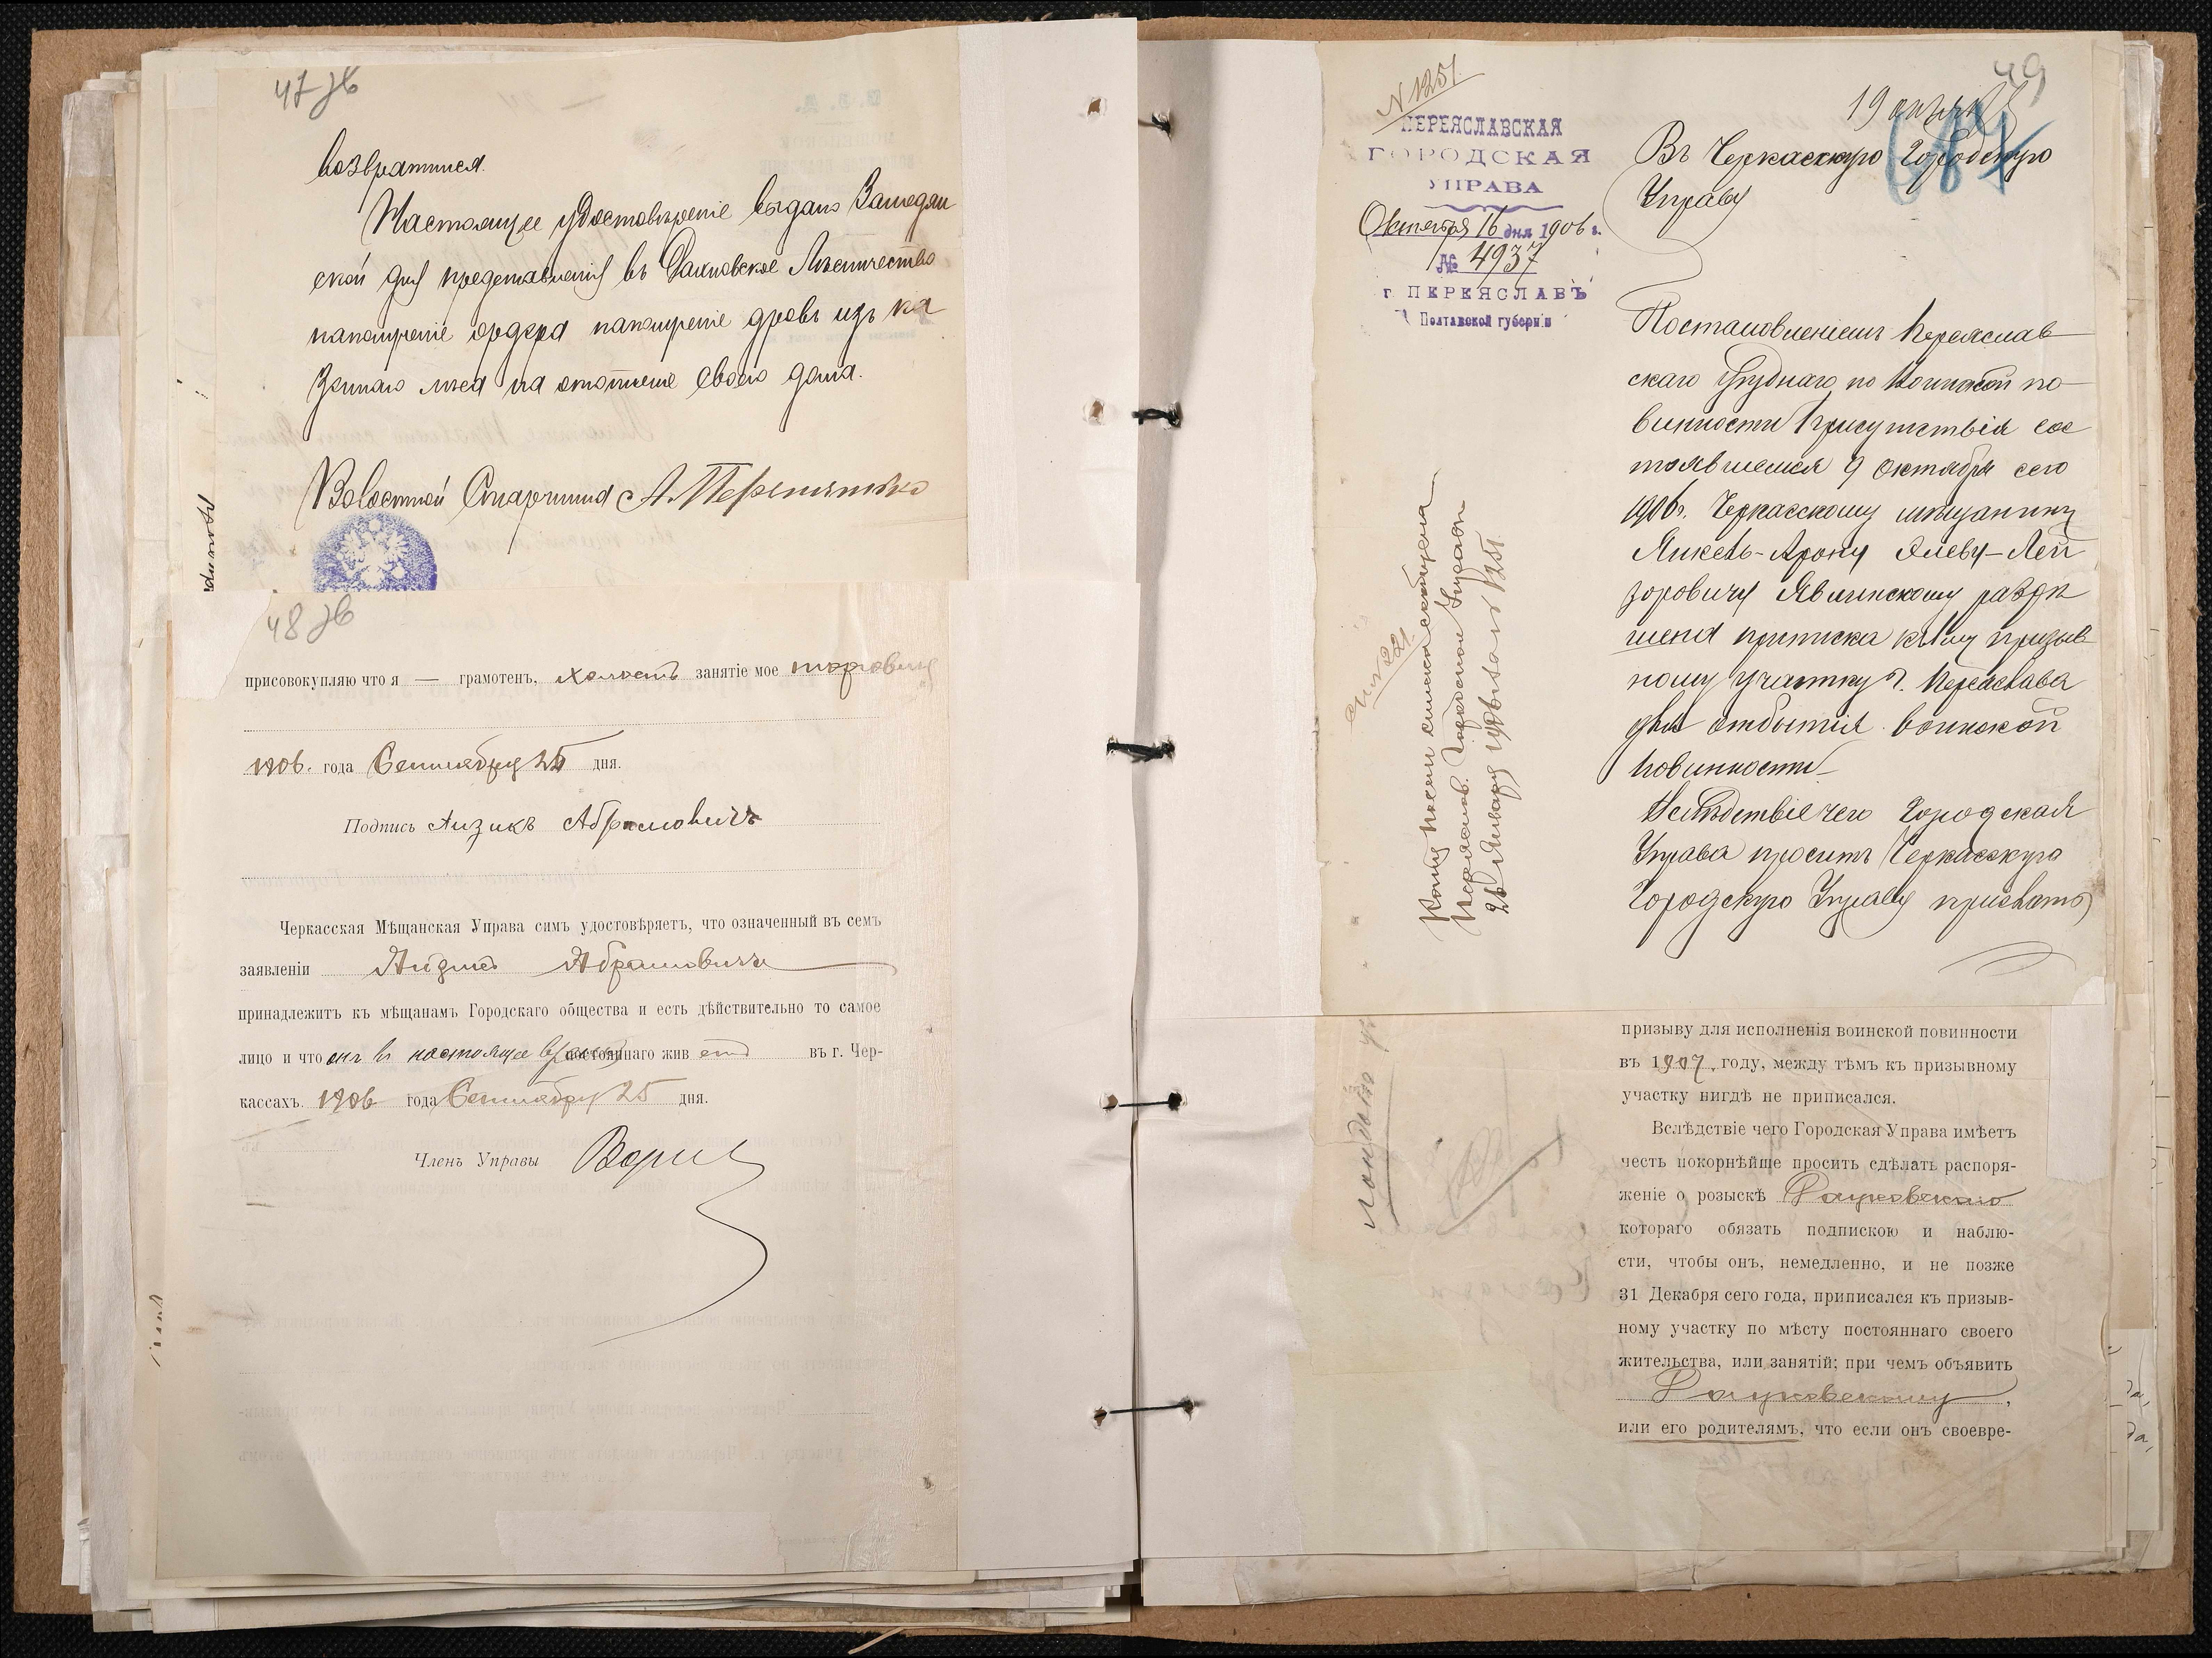 47 об
возвратился.
Настоящее удостовѣреніе выдано
ской для представленія въ Лѣсничество
дровъ изъ ка
зеннаго лѣса на отопленіе своего дома.
Волостной Старшина А.
48 об
присовокупляю что я — грамотенъ, холостъ занятіе мое торговля
1906. года Сентября 25 дня.
Подпись Айзикъ Абрамовичъ
Черкасская Мѣщанская Управа симъ удостовѣряетъ, что означенный въ семъ
заявленіи Абрамовичъ
принадлежитъ къ мѣщанамъ Городскаго общества и есть дѣйствительно то самое
лицо и что онъ въ настоящее время постояннаго жив етъ въ г. Чер-
кассахъ. 1906 года Сентября 25 дня.
Членъ Управы
49
N 1251.
ПЕРЕЯСЛАВСКАЯ
ГОРОДСКАЯ
УПРАВА
Октября 16 дня 1906 г.
№ 4937
г. ПЕРЕЯСЛАВЪ
Полтавской губерніи
Въ Черкасскую Городскую
Управу
Постановленіемъ Переяслав
скаго Уѣзднаго по Воинской по
винности Присутствія сос
тоявшемся 9 Октября сего
1906г. Черкасскому мѣщанину
Янкель-Арону Элевъ-Лей
зоровичу Явлинскому разрѣ
шена приписка къ 1му призыв
ному участку г. Переяслава
для отбытія воинской
повинности
Вслѣдствіе чего Городская
Управа проситъ Черкасскую
Городскую Управу прислать
Переяслав. Городской Управѣ
26 Января 1907 за N 1251.
призыву для исполненія воинской повинности
въ 1907, году, между тѣмъ къ призывному
участку нигдѣ не приписался.
Вслѣдствіе чего Городская Управа имѣетъ
честь покорнѣйше просить сдѣлать распоря-
женіе о розыскѣ
котораго обязать подпискою и наблю-
сти, чтобы онъ, немедленно, и не позже
31 Декабря сего года, приписался къ призыв-
ному участку по мѣсту постояннаго своего
жительства, или занятій; при чемъ объявить
или его родителямъ, что если онъ своевре-